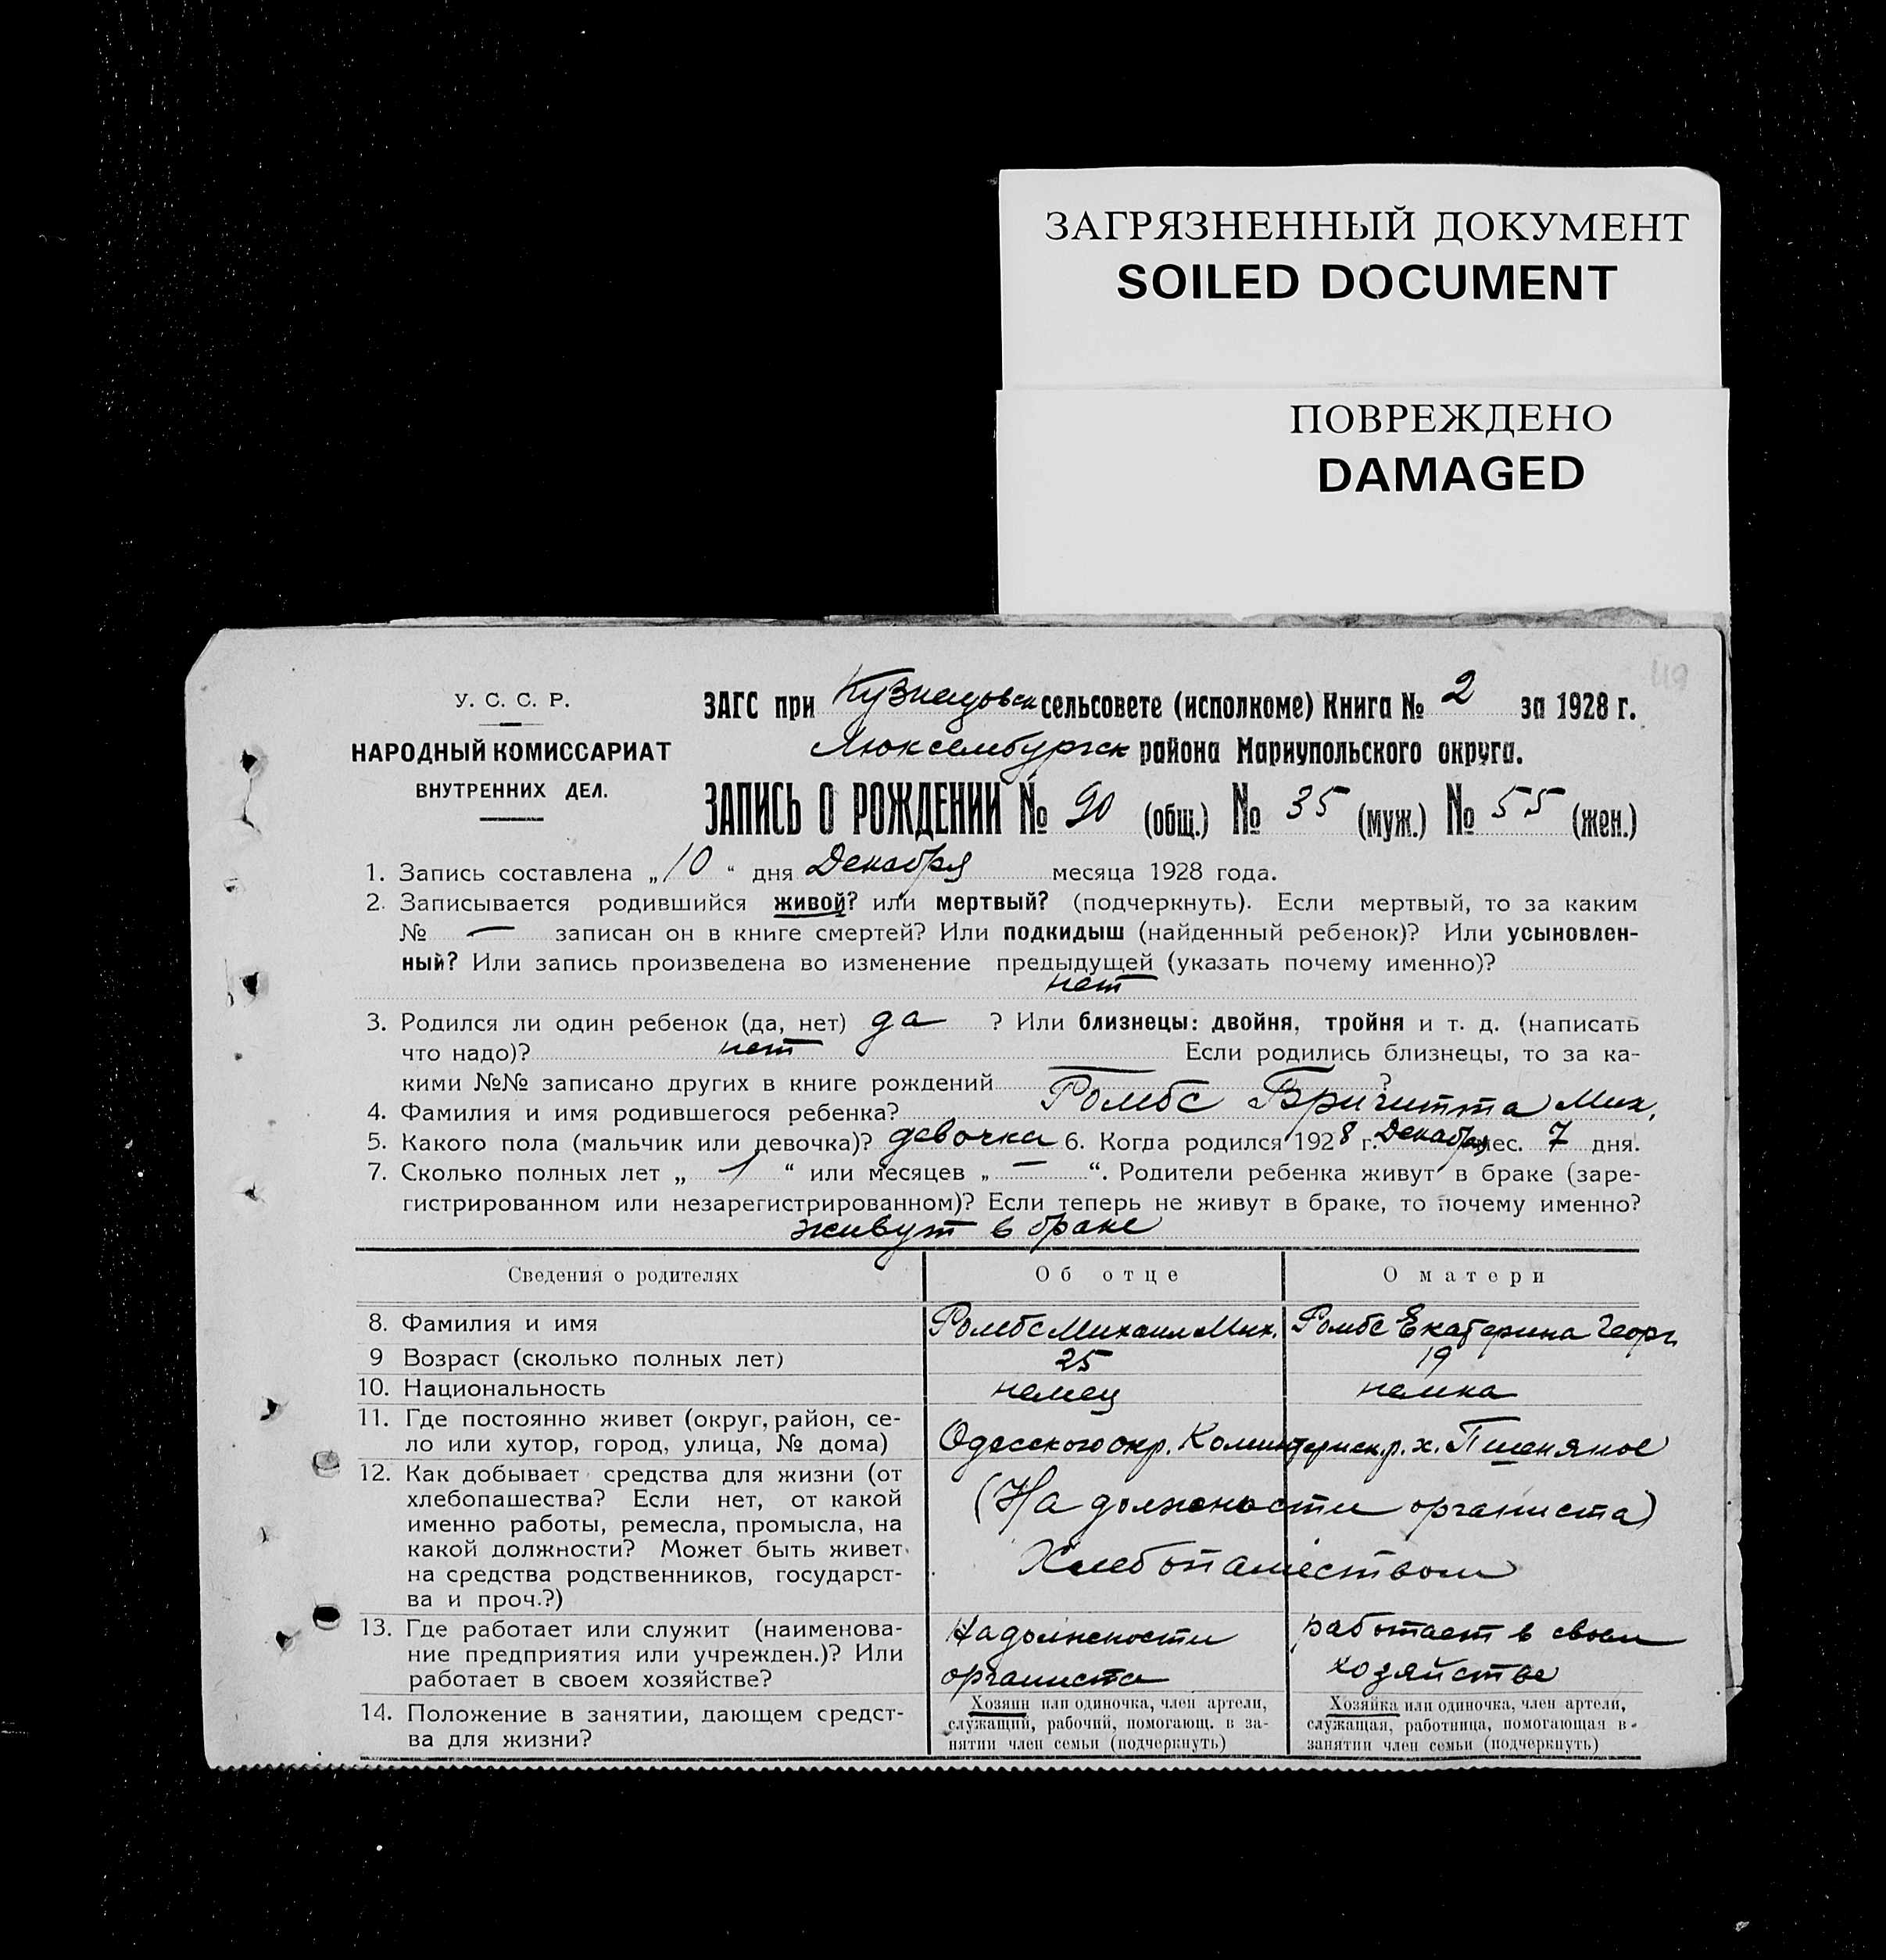 ЗАГРЯЗНЕННЫЙ ДОКУМЕНТ
SOILED DOCUMENT
ПОВРЕЖДЕНО
DAMAGED
119
У. С. С. Р.
НАРОДНЫЙ КОМИССАРИАТ
ВНУТРЕННИХ ДЕЛ.
ЗАГС при Кузнецовск сельсовете (исполкоме) Книга № 2 за 1928 г.
Люксембургск района Мариупольского округа.
ЗАПИСЬ О РОЖДЕНИИ № 90 (общ.) № 35 (муж.) № 55 (жен.)
1. Запись составлена „10“ дня Декабря месяца 1928 года.
2. Записывается родившийся живой? или мертвый? (подчеркнуть). Если мертвый, то за каким
№ — записан он в книге смертей? Или подкидыш (найденный ребенок)? Или усыновлен-
ный? Или запись произведена во изменение предыдущей (указать почему именно)?
нет
3. Родился ли один ребенок (да, нет) да ? Или близнецы: двойня, тройня и т. д. (написать
что надо)? нет Если родились близнецы, то за ка-
кими №№ записано других в книге рождений — ?
4. Фамилия и имя родившегося ребенка? Ромбс Бригитта Мих.
5. Какого пола (мальчик или девочка)? девочка 6. Когда родился 1928 г. Декабря мес. 7 дня.
7. Сколько полных лет „ 1 “ или месяцев „ — “. Родители ребенка живут в браке (заре-
гистрированном или незарегистрированном)? Если теперь не живут в браке, то почему именно?
живут в браке
Сведения о родителях Об отце О матери
8. Фамилия и имя Ромбс Михаил Мих. Ромбс Екатерина Георг
9 Возраст (сколько полных лет) 25 19
10. Национальность немец немка
11. Где постоянно живет (округ, район, се-
ло или хутор, город, улица, № дома) Одесского окр. Коминтернск. р. х. Пшеняное
12. Как добывает средства для жизни (от
хлебопашества? Если нет, от какой
именно работы, ремесла, промысла, на
какой должности? Может быть живет
на средства родственников, государст-
ва и проч.?)
(На должности органиста)
Хлебопашеством
13. Где работает или служит (наименова-
ние предприятия или учрежден.)? Или
работает в своем хозяйстве?
На должности
органиста
работает в своем
хозяйстве
14. Положение в занятии, дающем средст-
ва для жизни?
Хозяин или одиночка, член артели,
служащий, рабочий, помогающ. в за-
нятии член семьи (подчеркнуть)
Хозяйка или одиночка, член артели,
служащая, работница, помогающая в
занятии член семьи (подчеркнуть)